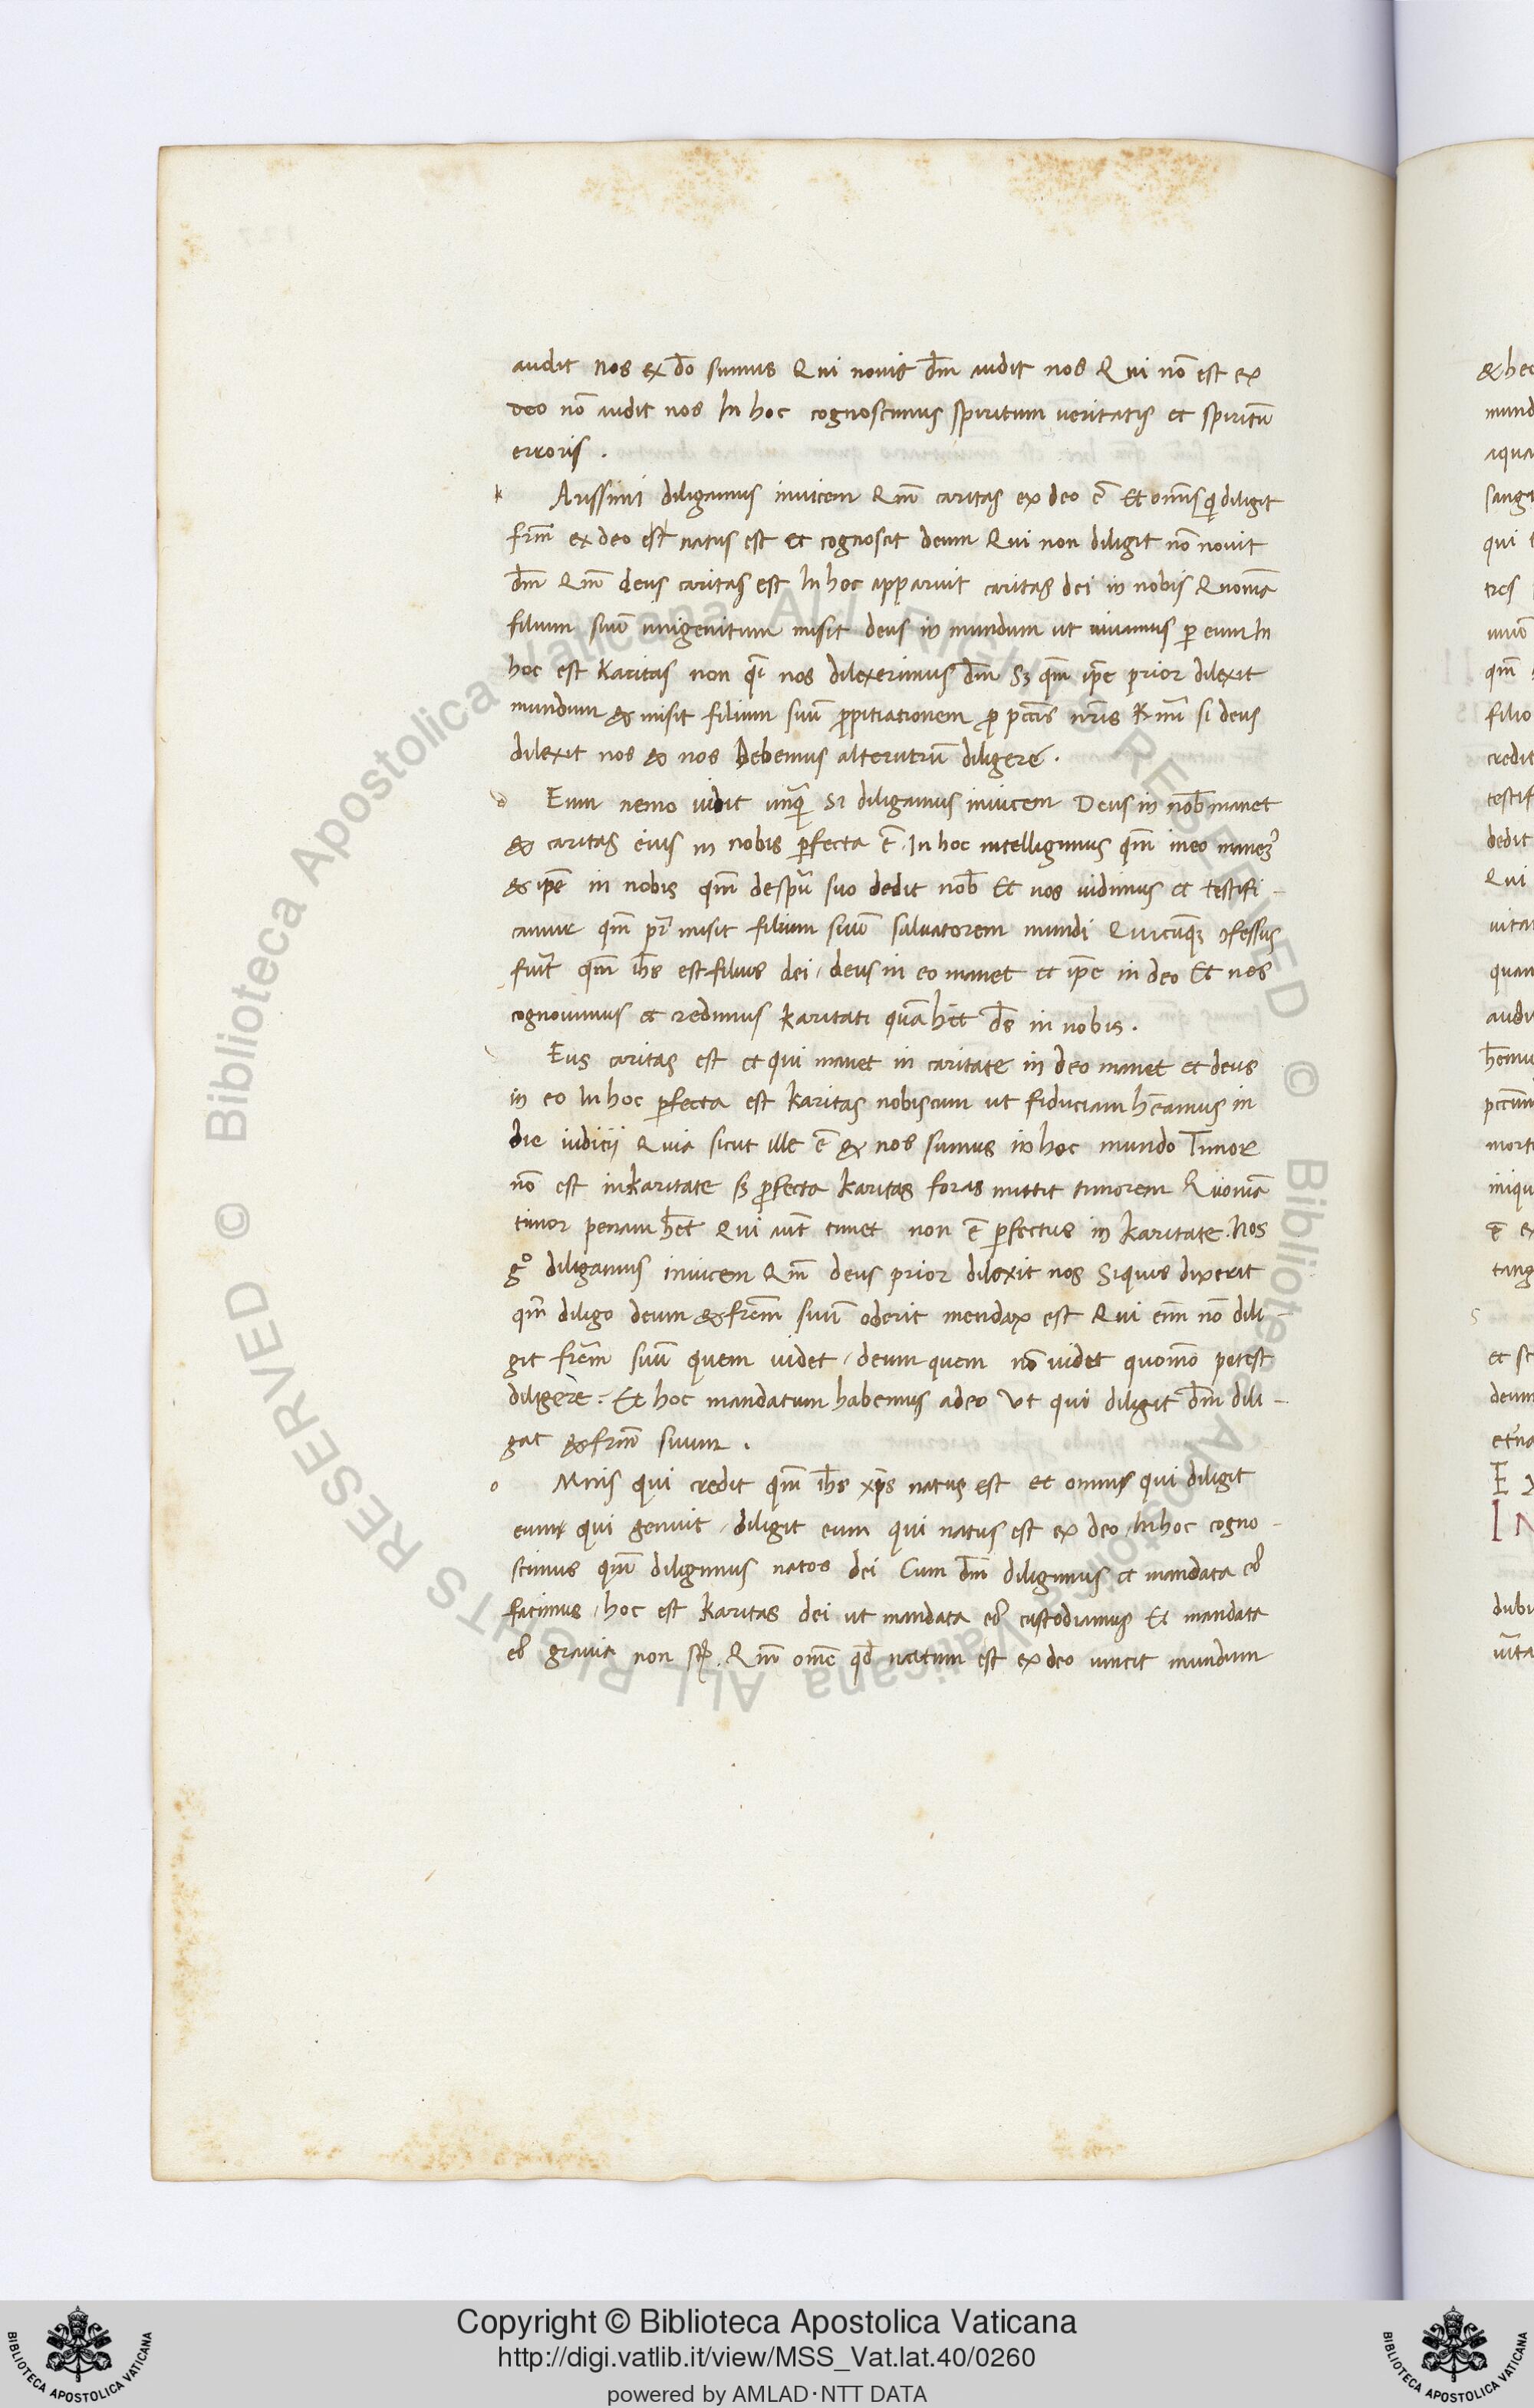 audit nos ex dō sumus Qui nouit dm̄ audit nos Qui nō est ex
deo nō audit nos In hoc cognoscimus spiritum ueritatis et spiritū
erroris .
k Arissimi diligamus inuicem Qm̄ caritas ex deo ē Et omnis qͥ diligit
frm̄ ex deo est natus est et cognoscit deum Qui non diligit nō nouit
dm̄ Qm̄ deus caritas est In hoc apparuit caritas dei in nobis Quoniā
filium suū unigenitum misit deus in mundum ut uiuamus ꝑ eum In
hoc est karitas non qͣi nos dilexerimus dm̄ Sꝫ qm̄ ip̄e prior dilexit
mundum & misit filium suū ꝓpitiationem ꝓ pccīs nr̄is K mī si deus
dilexit nos & nos Debemus alterutrū diligere .
d Eum nemo uidit unqͣ Si diligamus inuicem Deus in nob̄ manet
& caritas eius in nobis ꝑfecta ē . In hoc intelligimus qm̄ in eo manemꝰ
& ip̄e in nobis qm̄ de spū suo dedit nob̄ Et nos uidimus et testifi-
camur qm̄ pr̄ misit filium suū saluatorem mundi Quicūqꝫ ↄfessus
fuīt qm̄ ih̄s est filius dei . deus in eo manet et ip̄e in deo Et nos
cognouimus et credimus karitati quā h̄et d̄s in nobis .
Eus caritas est et qui manet in caritate in deo manet et deus
in eo In hoc ꝑfecta est karitas nobiscum ut fiduciam h̄eamus in
die iudicij Quia sicut ille ē & nos sumus in hoc mundo Timor
nō est in karitate sꝫ ꝑfecta karitas foras mittit timorem Quoniā
timor penam h̄et Qui aut̄ timet non ē ꝑfectus in karitate . Nos
gͦ diligamus inuicem Qm̄ deus prior dilexit nos Siquis dixerit
qm̄ diligo deum & frēm suū oderit mendax est Qui enī nō dili-
git frēm suū quem uidet . deum quem nō uidet quomō potest
diligere . Et hoc mandatum habemus a deo Ut qui diligit dm̄ dili-
gat & frēm suum .
o Mnis qui credit qm̄ ih̄s xp̄s natus est et omnis qui diligit
eum qui genuit . diligit eum qui natus est ex deo . In hoc cogno-
scimus qm̄ diligimus natos dei Cum dm̄ diligimus et mandata eꝰ
facimus . hoc est karitas dei ut mandata eꝰ custodiamus Et mandata
eꝰ grauia non st̄ . Qm̄ omē qd̄ natum est ex deo uincit mundum
& hec
mund
aqua
sangu
qui t
tres
qm̄
filio
credit
testif
dedit
Qui
uitam
quam
audi
h̄emu
mort
iniqu
ē ex
tang
et sc
deum
E X
I N
dubi
uita
© Biblioteca Apostolica Vaticana ALL RIGHTS RESERVED © Biblioteca Apostolica Vaticana ALL RIGHTS RESERVED
Copyright © Biblioteca Apostolica Vaticana
http://digi.vatlib.it/view/MSS_Vat.lat.40/0260
powered by AMLAD·NTT DATA
BIBLIOTECA APOSTOLICA VATICANA
BIBLIOTECA APOSTOLICA VATICANA